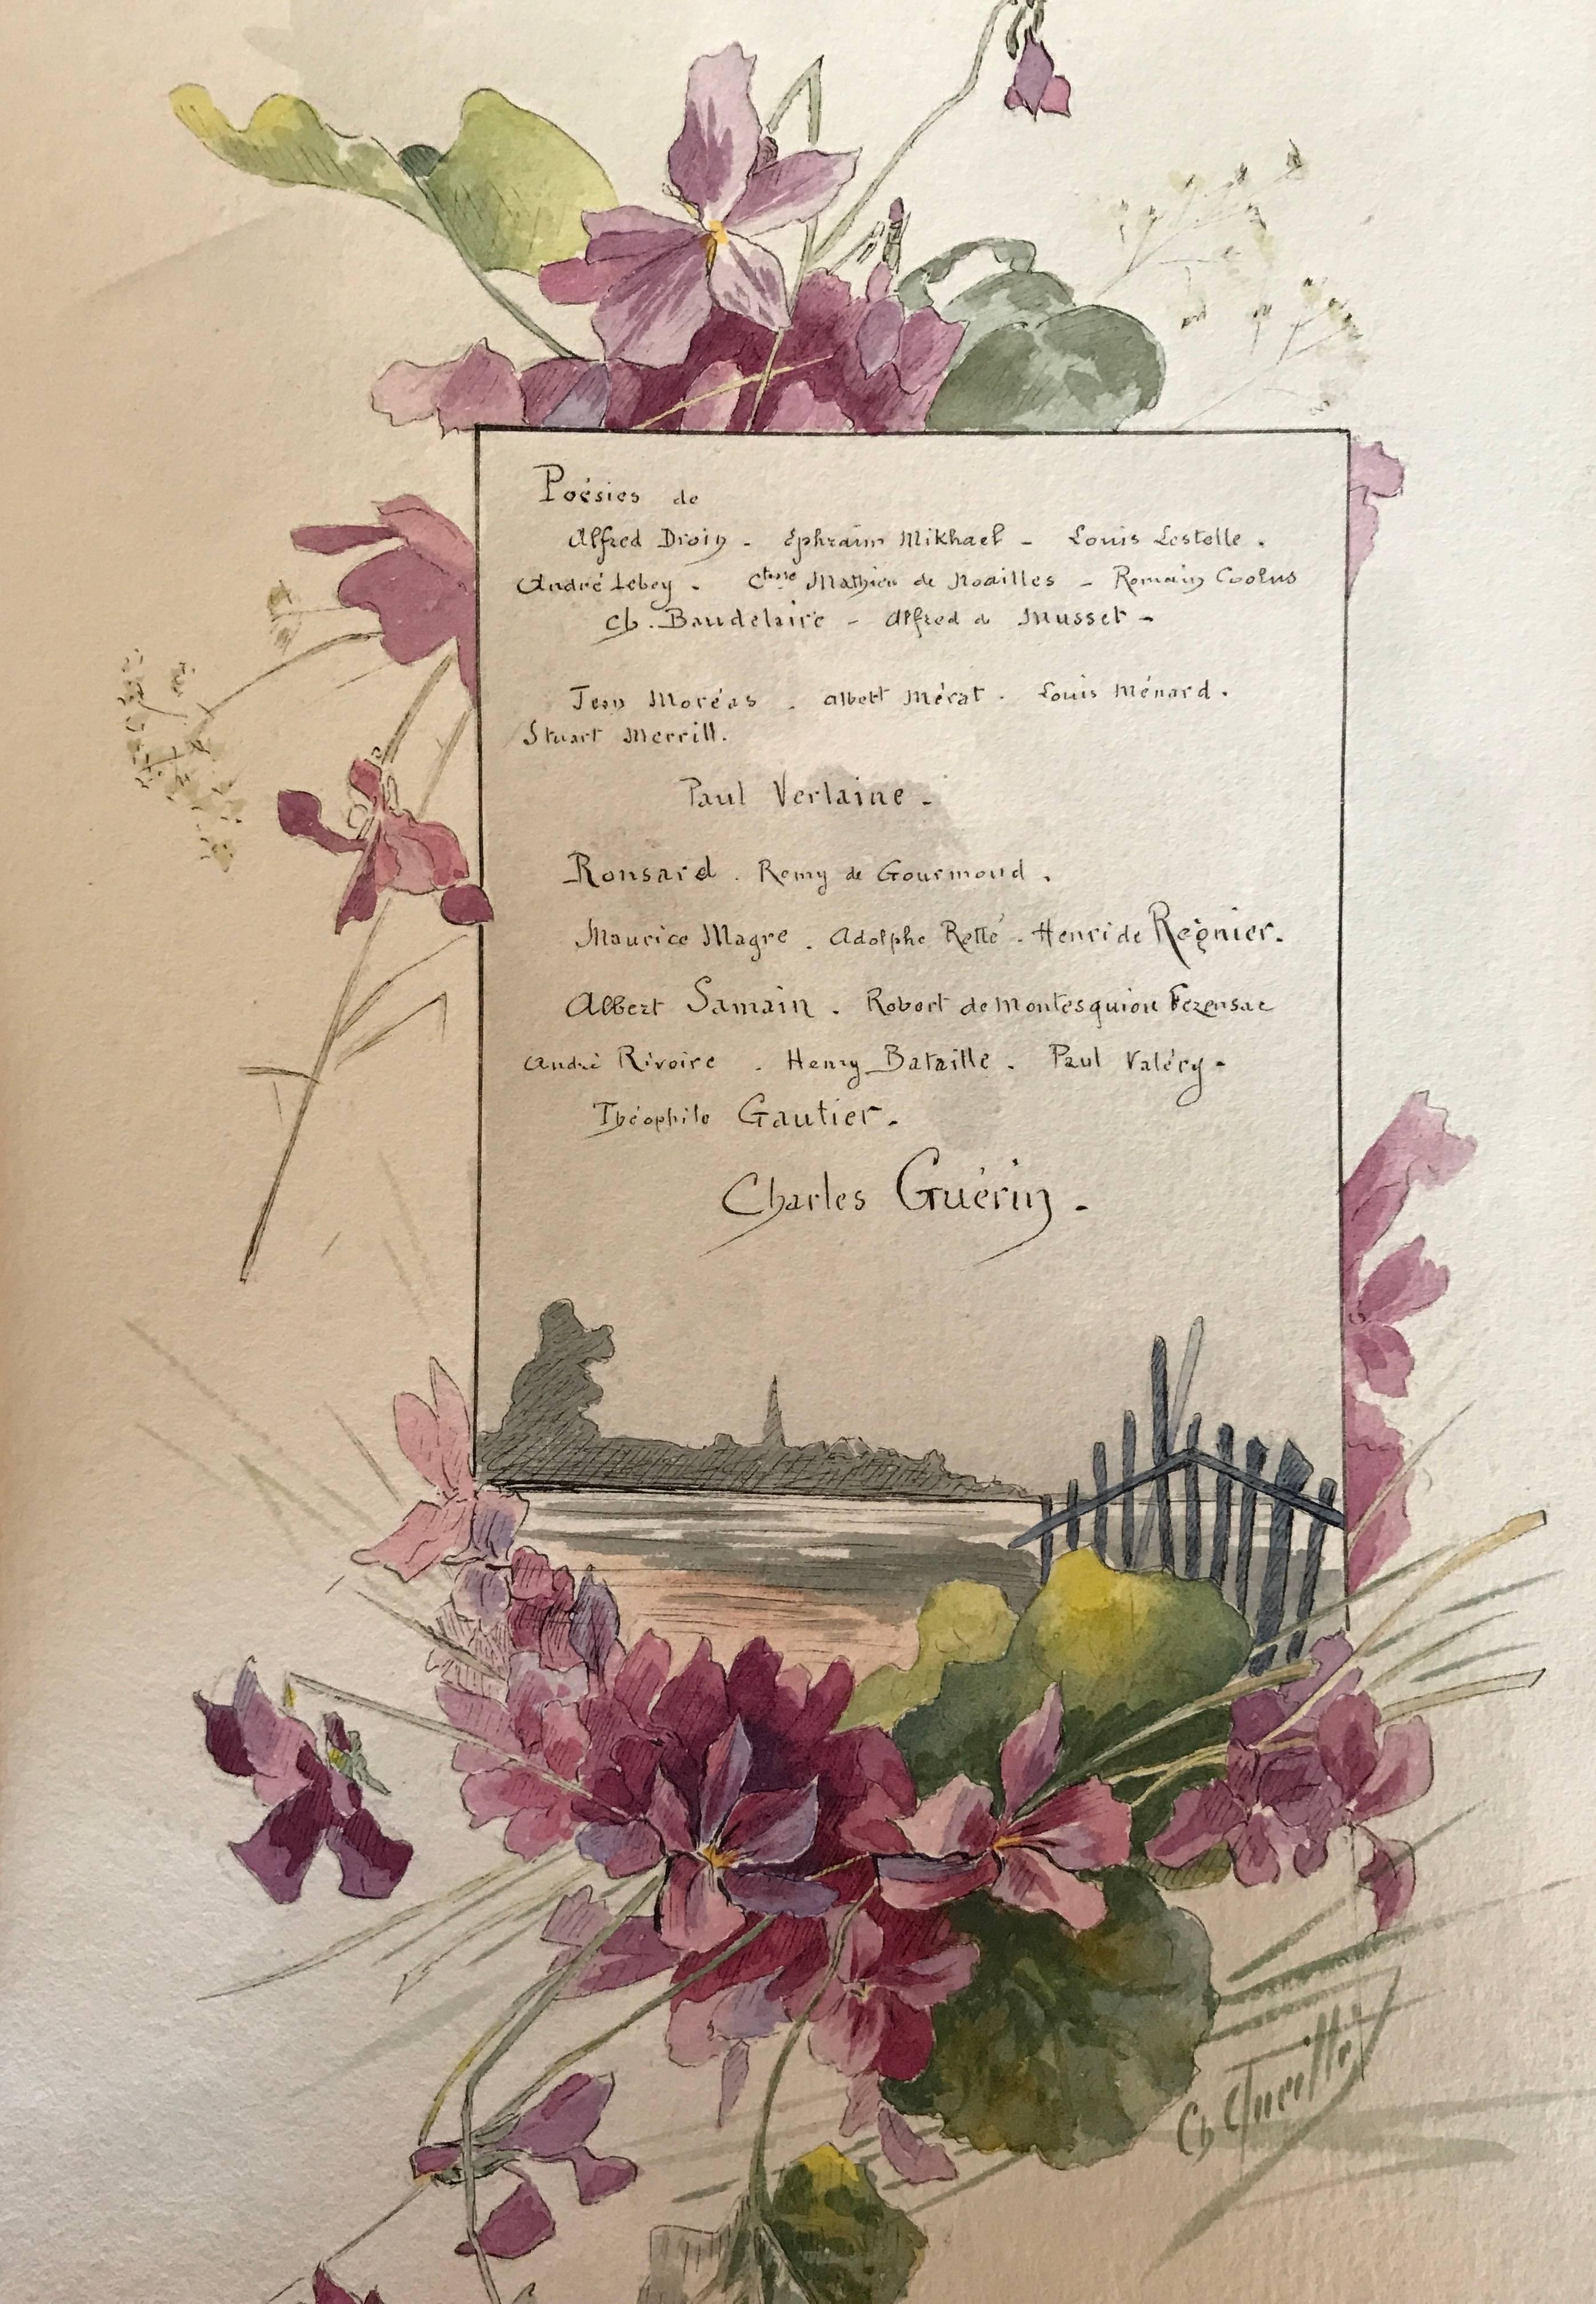 Poésies de
Alfred Droin - Ephraïm Mikhael - Louis Lestelle.
André Lebey. Ctesse Mathieu de Noailles - Romain Coolus
Ch. Baudelaire - Alfred de Musset -
Jean Moréas. Albert Mérat. Louis Ménard.
Stuart Merrill.
Paul Verlaine.
Ronsard. Remy de Gourmond.
Maurice Magre. Adolphe Retté. Henri de Régnier.
Albert Samain. Robert de Montesquiou Fezensac
André Rivoire. Henry Bataille. Paul Valéry.
Théophile Gautier.
Charles Guérin.
Ch